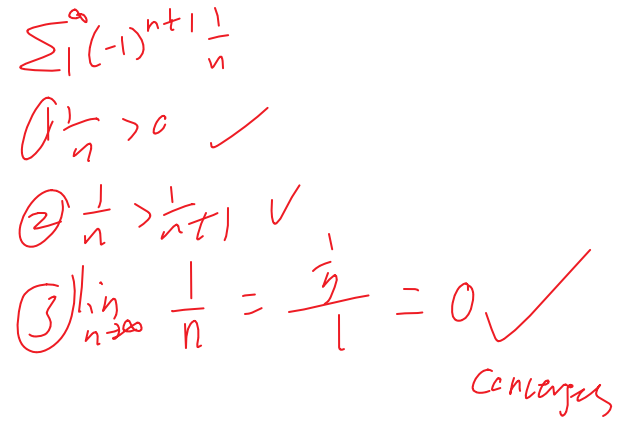 ∑₁^∞ (-1)^(n+1) 1/n
① 1/n > 0 ✓
② 1/n > 1/(n+1) ✓
③ lim n→∞ 1/n = (1/n)/1 = 0 ✓
Converges